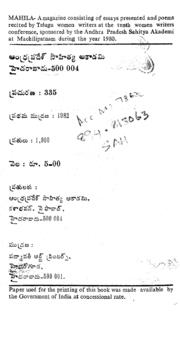 MAHILA- A magazine consisting of essays presented and poems
recited by Telugu women writers at the tenth women writers
conference, sponsored by the Andhra Pradesh Sahitya Akademi
at Machilipatnam during the year 1980.
ఆంధ్రప్రదేశ్ సాహిత్య అకాడమి
హైదరాబాదు-500 004
ప్రచురణ : 335
ప్రథమ ముద్రణ : 1982
ప్రతులు : 1,000
వెల : రూ. 5-00
ప్రతులకు :
ఆంధ్రప్రదేశ్ సాహిత్య అకాడమి,
కళాభవన్, సైఫాబాద్,
హైదరాబాదు-500 004
ముద్రణ :
పద్మావతీ ఆర్ట్ ప్రింటర్స్,
హైదరాబాదు-500 001.
Paper used for the printing of this book was made available by
the Government of India at concessional rate.